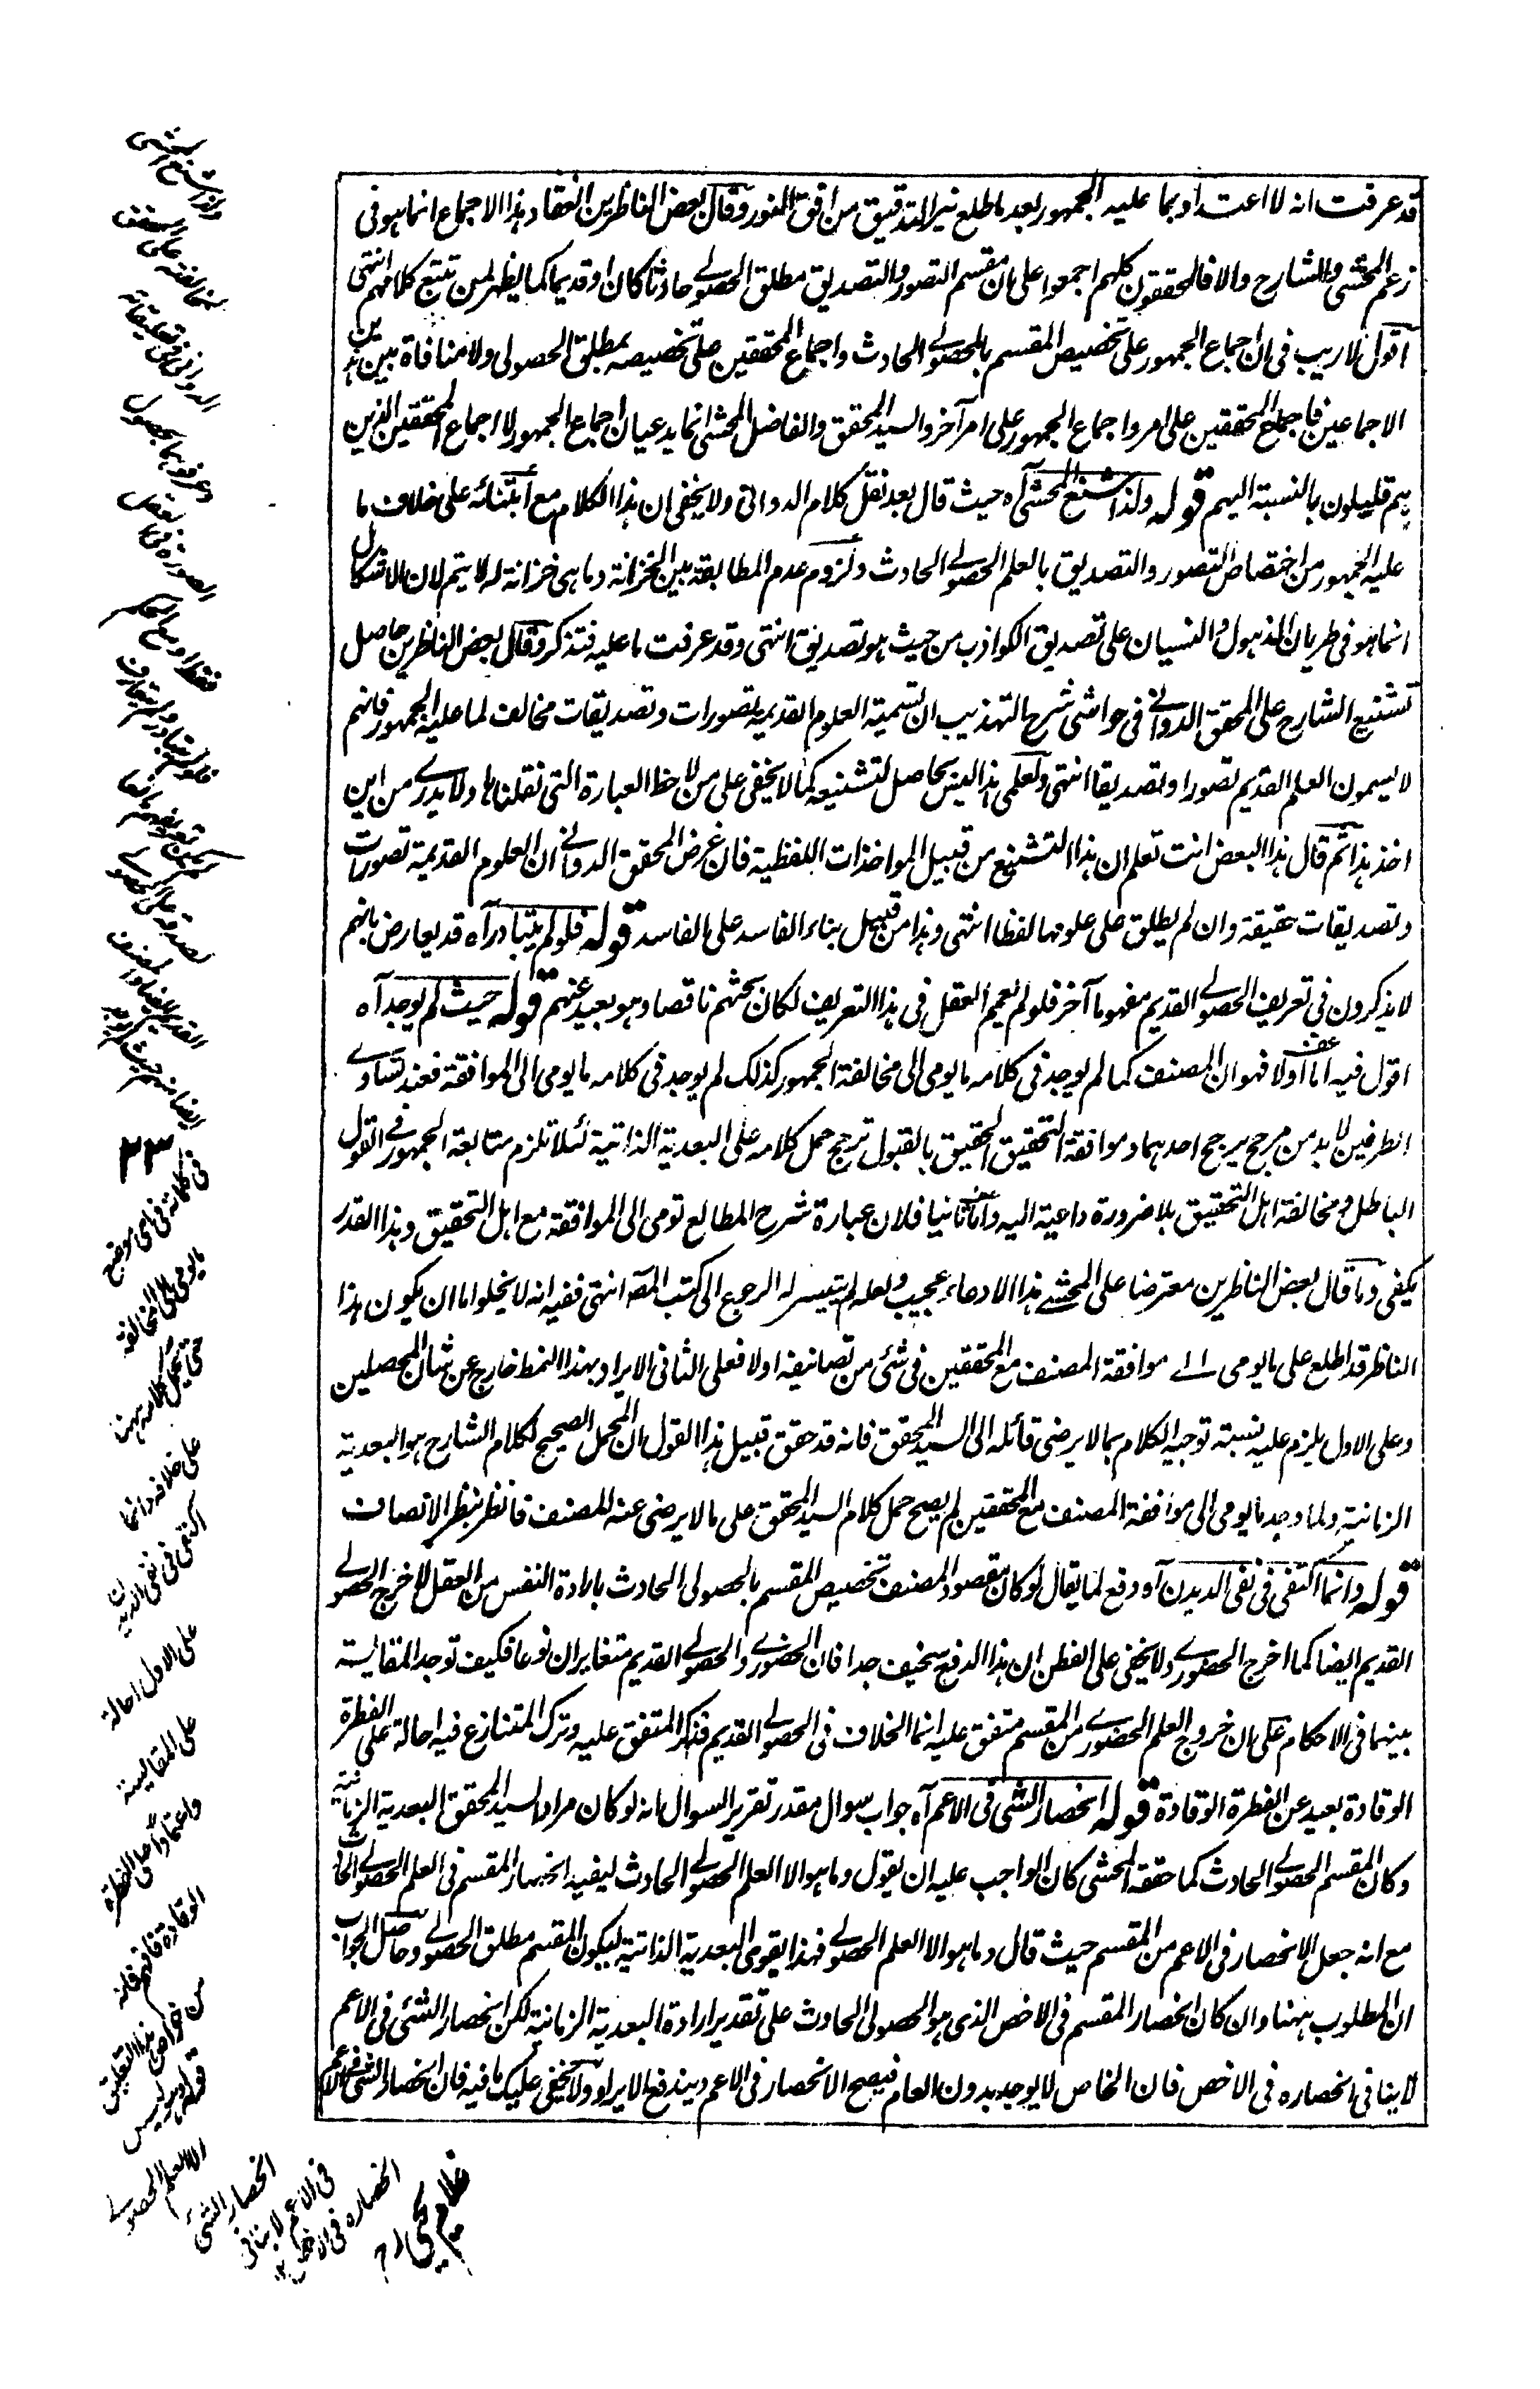 قد عرفت انه لا اعتداد بما عليه الجمهور بعد ما طلع نير التدقيق من افق الفور وقال بعض الناظرين انعقاد هذا الاجماع انما هو فى
زعم المحشى والشارح والا فالمحققون كلهم اجمعوا على ان مقسم التصور والتصديق مطلق الحصولے حادثا كان او قديما كما يظهر لمن تتبع كلامهم انتهى
اقول لا ريب فى ان اجماع الجمهور على تخصيص المقسم بالحصولے الحادث واجماع المحققين على تخصيصه بمطلق الحصولى ولا منافاة بين هذين
الاجماعين فاجماع المحققين على امر واجماع الجمهور على امر آخر والسيد المحقق والفاضل المحشى انما يدعيان اجماع الجمهور لا اجماع المحققين الذين
هم قليلون بالنسبة اليهم قوله ولذا شنع المحشى آه حيث قال بعد نقل كلام الدوانى ولا يخفى ان هذا الكلام مع ابتنائه على خلاف ما
عليه الجمهور من اختصاص التصور والتصديق بالعلم الحصولے الحادث ولزوم عدم المطابقة بين الخزانة وما هى خزانة له لا يتم لان الاشكال
انما هو فى طريان الذهول والنسيان على تصديق الكواذب من حيث هو تصديق انتهى وقد عرفت ما عليه فتذكر وقال بعض الناظرين حاصل
تشنيع الشارح على المحقق الدوانے فى حواشى شرح التهذيب ان تسمية العلوم القديمة بتصورات وتصديقات مخالف لما عليه الجمهور فانهم
لا يسمون العلم القديم تصورا وتصديقا انتهى ولعلمى هذا ليس بحاصل لتشنيعه كما لا يخفى على من لاحظ العبارة التى نقلناها ولا يدرے من اين
اخذ هذا ثم قال هذا البعض انت تعلم ان هذا التشنيع من قبيل المواخذات اللفظية فان غرض المحقق الدوانے ان العلوم القديمة تصورات
وتصديقات حقيقة وان لم يطلق على علومها لفظا انتهى وهذا من قبيل بناء الفاسد على الفاسد قوله فلو لم يتبادر آه قد يعارض بانهم
لا يذكرون فى تعريف الحصولے القديم مفهوما آخر فلو لم يعمم العقل فى هذا التعريف لكان بحثهم ناقصا وهو بعيد عنهم قوله حيث لم يوجد آه
اقول فيه اما اولا فهو ان المصنف كما لم يوجد فى كلامه ما يومى الى مخالفة الجمهور كذلك لم يوجد فى كلامه ما يومى الى الموافقة فعند تساوے
الطرفين لا بد من مرجح يرجح احدهما وموافقة التحقيق الحقيق بالقبول ترجح حمل كلامه على البعدية الذاتية لئلا تلزم متابعة الجمهور فے القول
الباطل ومخالفة اهل التحقيق بلا ضرورة داعية اليه واما ثانيا فلان عبارة شرح المطالع تومى الى الموافقة مع اهل التحقيق وهذا القدر
يكفى وما قال بعض الناظرين معترضا على المحشے هذا الادعاء عجيب ولعله لم يتيسر له الرجوع الى كتب المصـ انتهى ففيه انه لا يخلوا ما ان يكون هذا
الناظر قد اطلع على ما يومى الے موافقة المصنف مع المحققين فى شئ من تصانيفه اولا فعلى الثانى الايراد بهذا النمط خارج عن شان المحصلين
وعلى الاول يلزم عليه نسبته توجيه الكلام بما لا يرضى قائله الى السيد المحقق فانه قد حقق قبيل هذا القول ان المحمل الصحيح لكلام الشارح هو البعدية
الزمانية ولما وجد ما يومى الى موافقة المصنف مع المحققين لم يصح حمل كلام السيد المحقق على ما لا يرضى عنه المصنف فانظر بنظر الانصاف
قوله وانما اكتفى فى نفى الديدن آه دفع لما يقال لو كان مقصود المصنف تخصيص المقسم بالحصولى الحادث بارادة النفس من العقل لاخرج الحصولے
القديم ايضا كما اخرج الحضورے ولا يخفى على الفطن ان هذا الدفع سخيف جدا فان الحضورے والحصولے القديم متغايران نوعا فكيف توجد المقايسة
بينهما فى الاحكام على ان خروج العلم الحضورے من المقسم متفق عليه انما الخلاف فى الحصولے القديم فذكر المتفق عليه وترك المتنازع فيه احالة على الفطرة
الوقادة بعيد عن الفطرة الوقادة قوله انحصار الشئ فى الاعم آه جواب سوال مقدر تقرير السوال انه لو كان مراد السيد المحقق البعدية الزمانية
وكان المقسم الحصولے الحادث كما حققه المحشى كان الواجب عليه ان يقول وما هو الا العلم الحصولے الحادث ليفيد انحصار المقسم فى العلم الحصولے الحادث
مع انه جعل الانحصار فى الاعم من المقسم حيث قال وما هو الا العلم الحصولے فهذا يقوى البعدية الذاتية ليكون المقسم مطلق الحصولے وحاصل الجواب
ان المطلوب ههنا وان كان انحصار المقسم فى الاخص الذى هو الحصولى الحادث على تقدير ارادة البعدية الزمانية لكن انحصار الشئ فى الاعم
لا ينافى انحصاره فى الاخص فان الخاص لا يوجد بدون العام فيصح الانحصار فى الاعم ويندفع الايراد ولا يخفى عليك ما فيه فان انحصار الشئ فى الاعم
٢٣
فى كلماته فى اى موضع
ما يومى الى المخالفة
حتى يحمل كلامه ههنا
على خلافه وانما
اكتفى فى نفى الديدن
على الاول احالة
على المقايسة
واعتمادا على الفطرة
الوقادة فافهم فانه
من خواص هذا التعليق
قوله وليس
الا العلم الحصولے
انحصار الشئ
فى الاعم لا ينافى
انحصاره فى الاخص
غلام يحيى